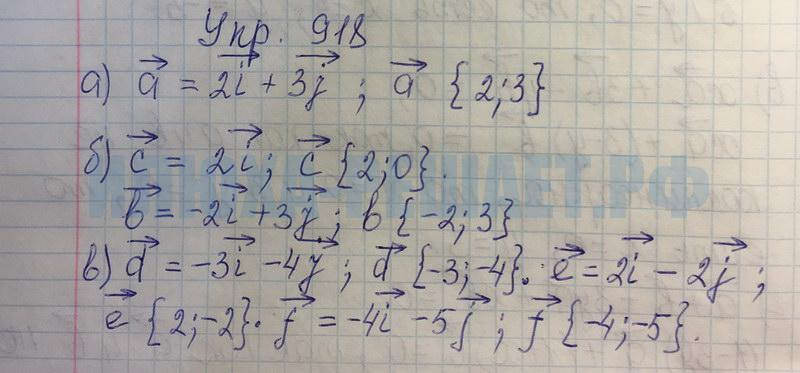 Упр. 918
а) a⃗ = 2i⃗ + 3j⃗ ; a⃗ {2;3}
б) c⃗ = 2i⃗; c⃗ {2;0}.
b⃗ = -2i⃗ + 3j⃗ ; b {-2;3}
в) d⃗ = -3i⃗ - 4j⃗ ; d⃗ {-3;-4}. e⃗ = 2i⃗ - 2j⃗ ;
e⃗ {2;-2}. f⃗ = -4i⃗ - 5j⃗ ; f⃗ {-4;-5}.